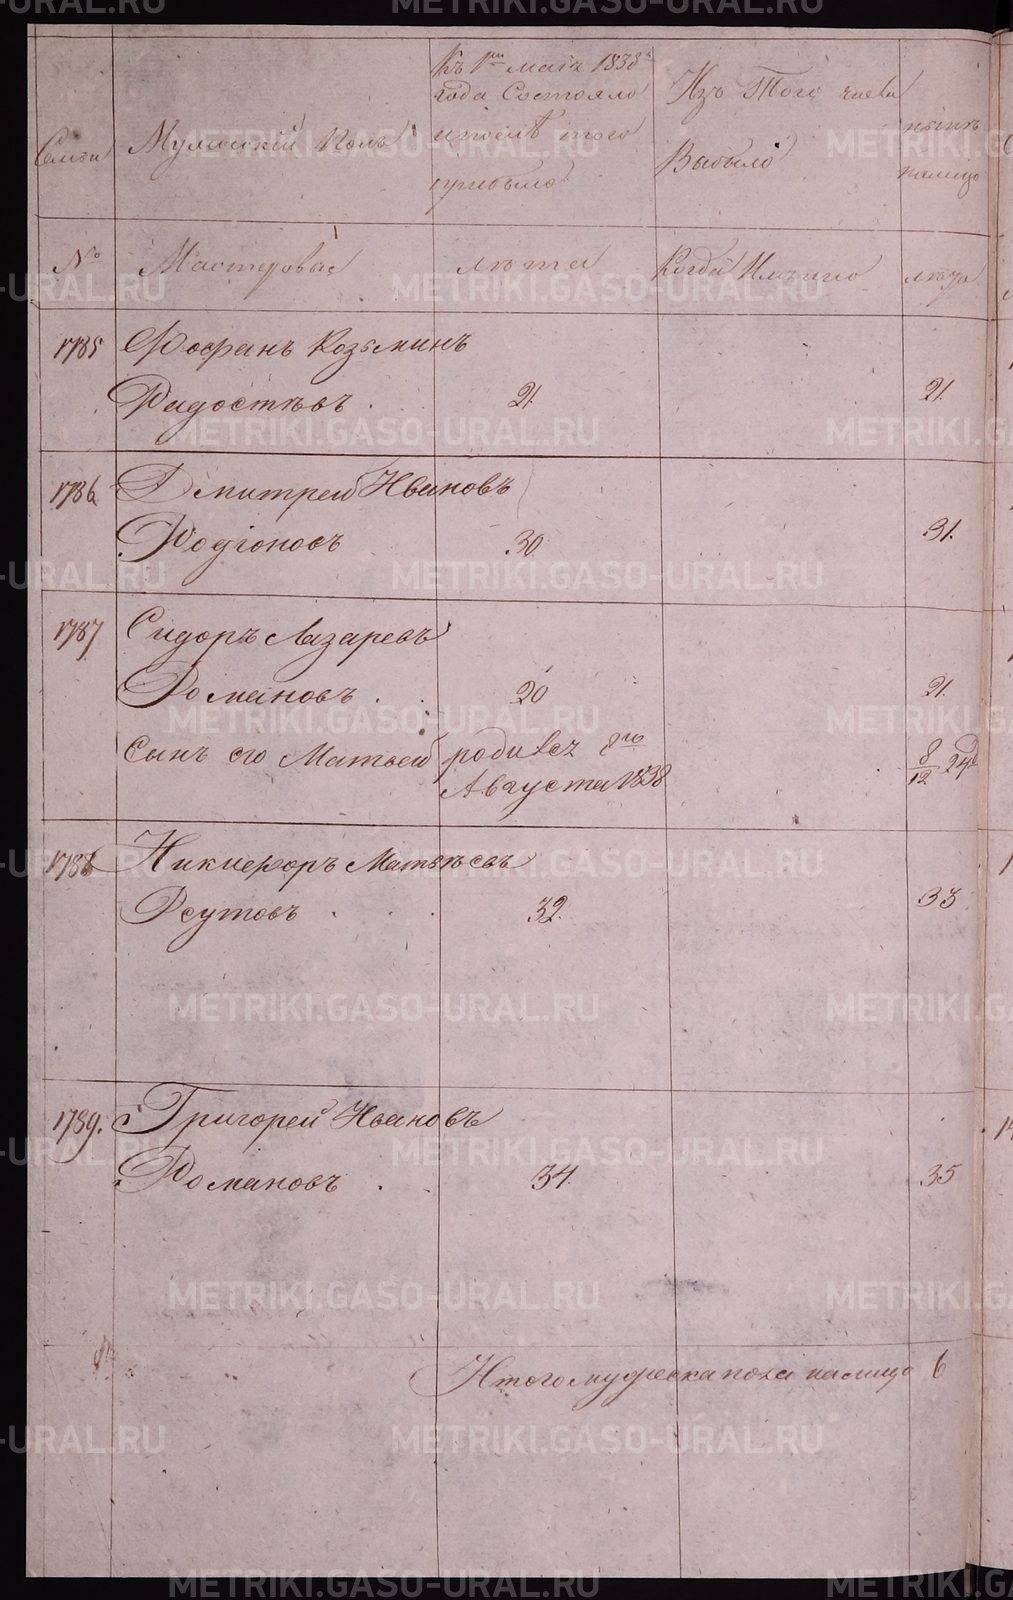 Семьи
Мужеский Полъ
Къ 1му маiя 1838го
года Состояло
и послѣ того
прибыло
Изъ Того числа
Выбыло
нынѣ
налицо
№
Мастеровые
лѣта
Когда Имянно
лѣта
1785
Фофанъ Козьминъ
Радостѣвъ . 21. 21.
1786
Дмитрей Ивановъ
Родiоновъ 30 31.
1787
Сидоръ Лазаревъ
Романовъ . . 20 21.
сынъ его Матвей родился 8го 8/12 24д
Августа 1838
1788
Никиѳоръ Матвѣевъ
Реутовъ . . . 32. 33
1789.
Григорей Ивановъ
Романовъ . . 34. 35
Итого мужеска пола налицо 6
METRIKI.GASO-URAL.RU